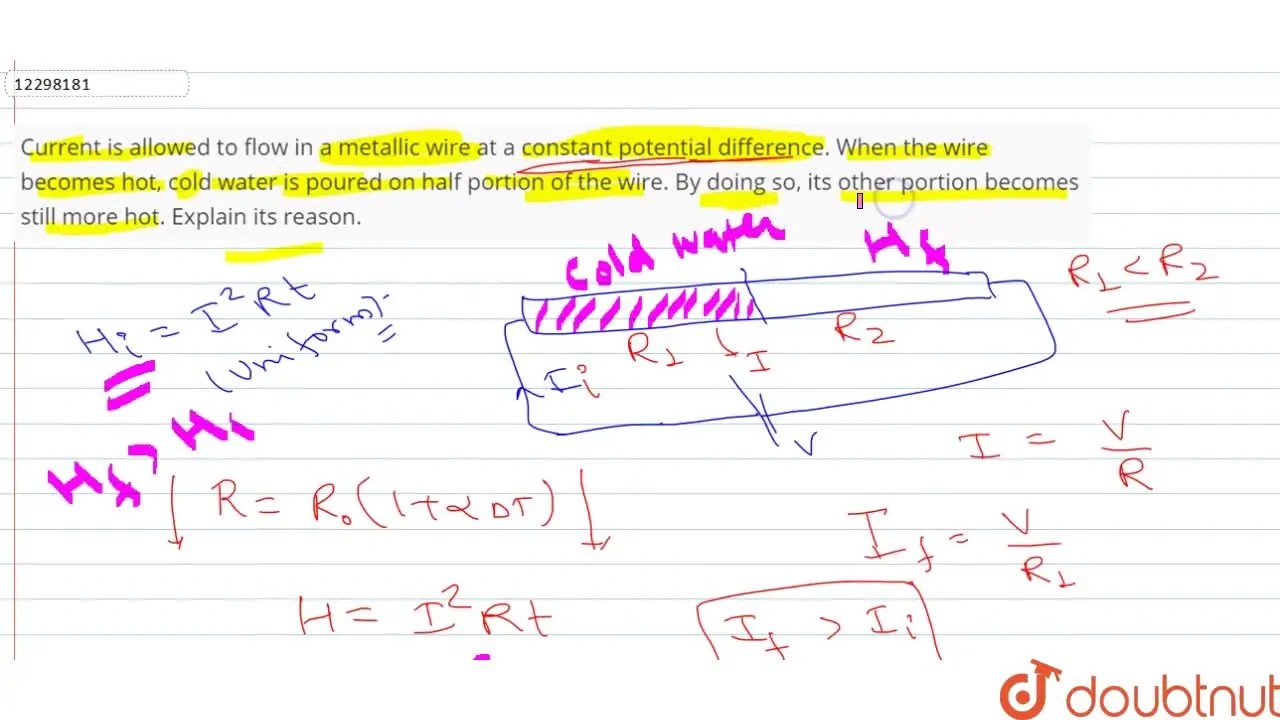 12298181
Current is allowed to flow in a metallic wire at a constant potential difference. When the wire
becomes hot, cold water is poured on half portion of the wire. By doing so, its other portion becomes
still more hot. Explain its reason.
Cold water
Hf
R1 < R2
Hi = I²Rt
(uniform)
R1
I
R2
Ii
V
Hf > Hi
I = V/R
R = R₀(1+αΔT)
If = V/R1
H = I²Rt
If > Ii
doubtnut